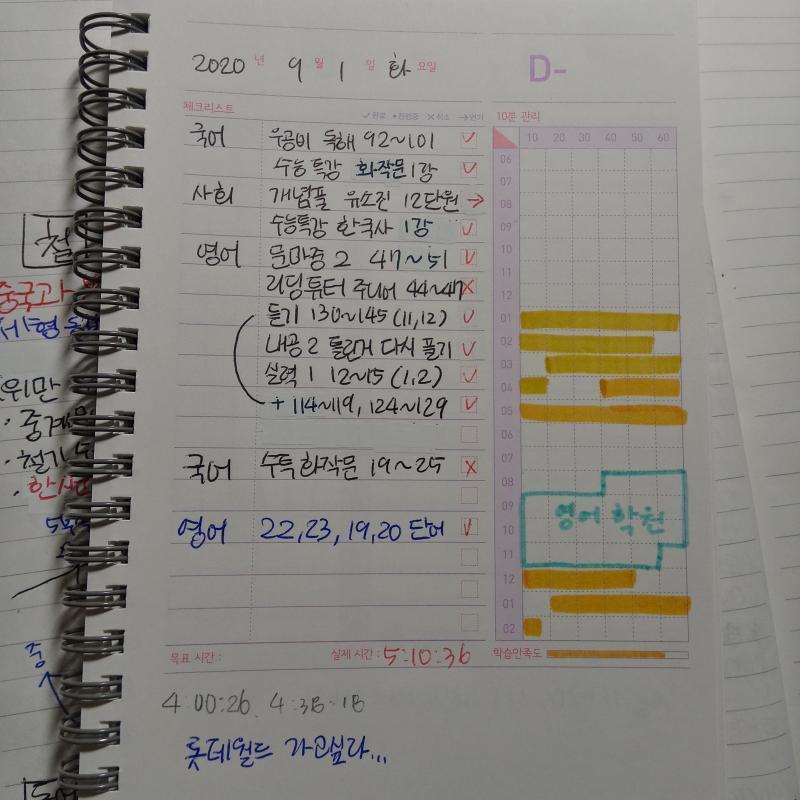 2020 년 9 월 1 일 화 요일 D-
체크리스트 ✓완료 •진행중 ×취소 →연기 10분 관리
10 20 30 40 50 60
국어 우공비 독해 92~101 ✓
수능특강 화작문 1강 ✓
사회 개념풀 유소진 12단원 →
수능특강 한국사 1강 ✓
영어 문마중 2 47~51 ✓
리딩튜터 주니어 44~47 ×
듣기 130~145 (11,12) ✓
내공 2 틀린거 다시 풀기 ✓
실력 1 12~15 (1,2) ✓
+ 114~119, 124~129 ✓
국어 수특 화작문 19~25 ×
영어 22,23,19,20 단어 ✓
06
07
08
09
10
11
12
01
02
03
04
05
06
07
08
09
10
11
12
01
02
영어 학원
목표 시간 : 실제 시간 : 5:10:36 학습만족도
4:00:26. 4:38:18
롯데월드 가고싶다...
철
중국과
위만
한사
중